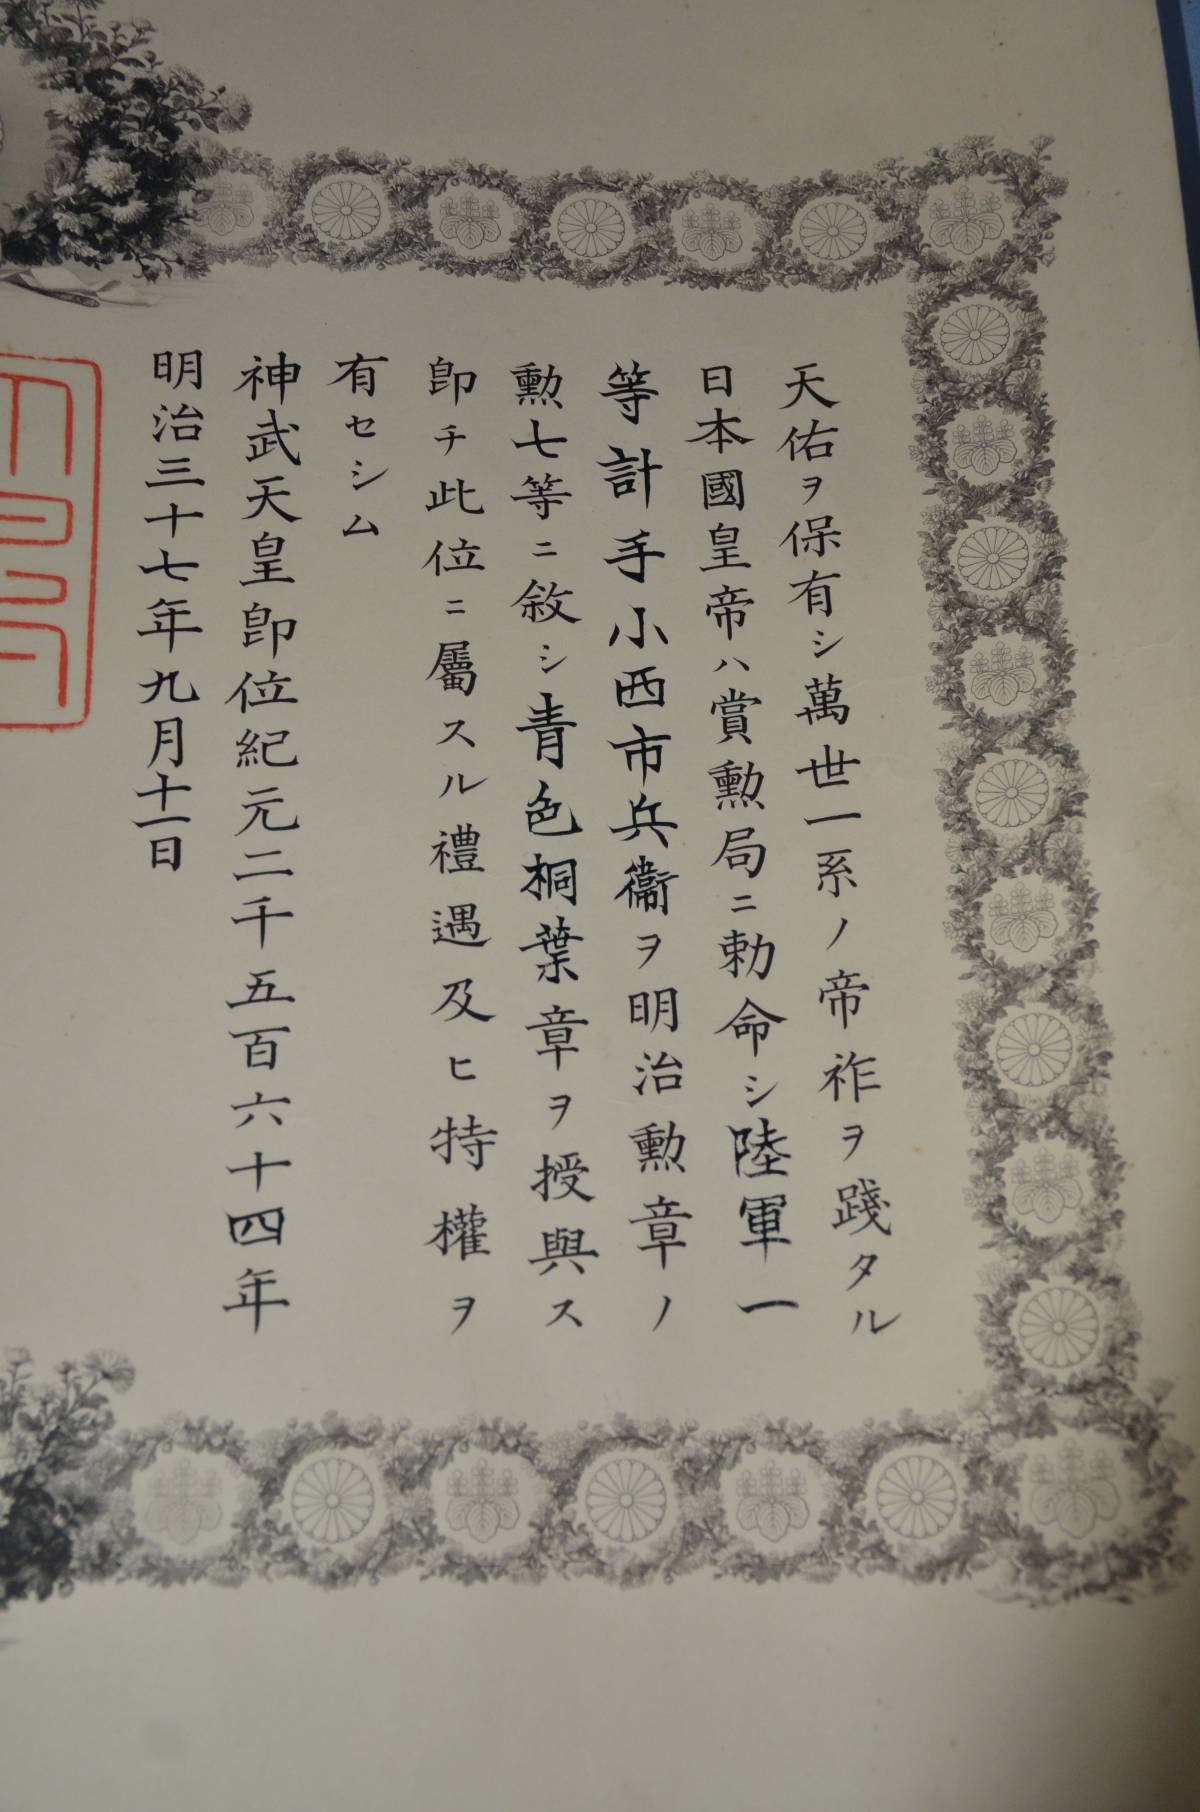 天佑ヲ保有シ萬世一系ノ帝祚ヲ踐タル
日本國皇帝ハ賞勲局ニ勅命シ陸軍一
等計手小西市兵衞ヲ明治勲章ノ
勲七等ニ敘シ青色桐葉章ヲ授與ス
卽チ此位ニ屬スル禮遇及ヒ特權ヲ
有セシム
神武天皇卽位紀元二千五百六十四年
明治三十七年九月十一日